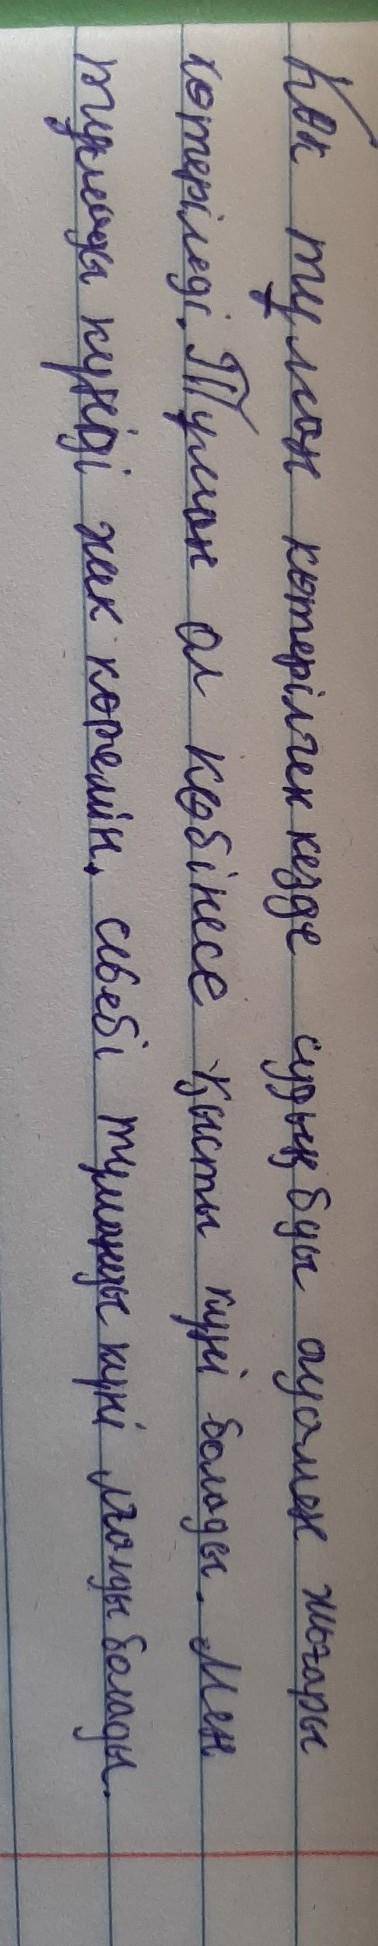 Көк тұман көтерілген кезде судың буы ауамен жоғары
көтеріледі. Тұман ол көбінесе қысты күні болады. Мен
күнді жек көремін, себебі тұманды күні ылғалды болады.